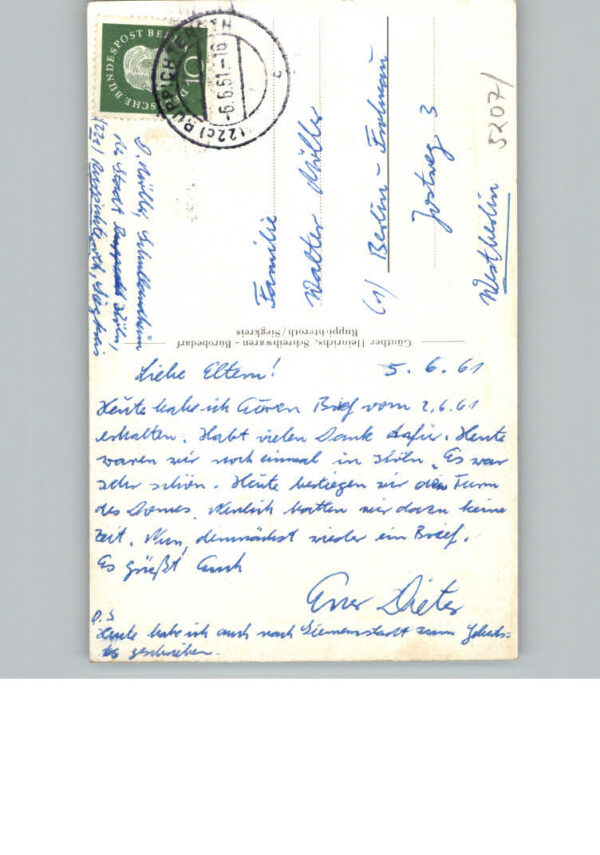 DEUTSCHE BUNDESPOST BERLIN
10
(22c) RUPPICHTEROTH
-6.6.61.-16
c
D. Müller, Schullandheim
der Stadt Köln,
(22c) Ruppichteroth, Siegkreis
Familie
Walter Müller
(1) Berlin - Frohnau
Jostweg 3
Westberlin
5207/
Günther Heinrichs, Schreibwaren - Bürobedarf
Ruppichteroth/Siegkreis
Liebe Eltern! 5.6.61
Heute habe ich Euren Brief vom 2.6.61
erhalten. Habt vielen Dank dafür. Heute
waren wir noch einmal in Köln. Es war
sehr schön. Heute bestiegen wir den Turm
des Domes. Neulich hatten wir dazu keine
Zeit. Nun, demnächst wieder ein Brief.
Es grüßt Euch
Euer Dieter
P.S
Heute habe ich auch nach Siemensstadt zum
geschrieben.